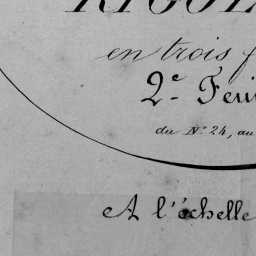 en trois f
2e Feui
du No 24, au
A l'échelle